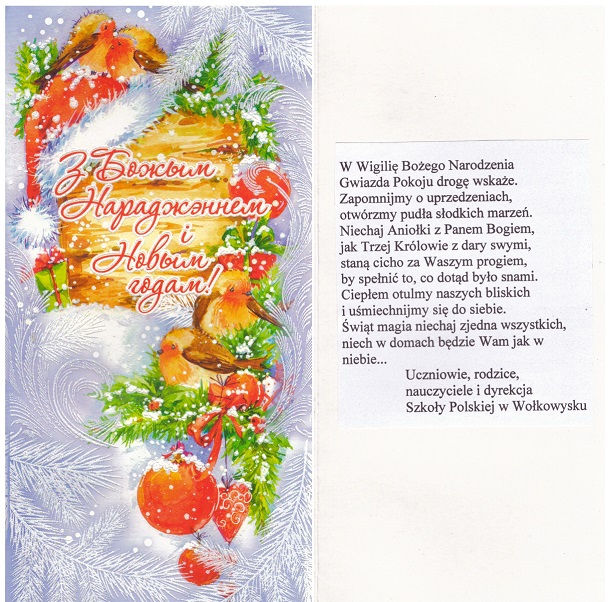 З Божым
Нараджэннем
і
Новым
годам!
W Wigilię Bożego Narodzenia
Gwiazda Pokoju drogę wskaże.
Zapomnijmy o uprzedzeniach,
otwórzmy pudła słodkich marzeń.
Niechaj Aniołki z Panem Bogiem,
jak Trzej Królowie z dary swymi,
staną cicho za Waszym progiem,
by spełnić to, co dotąd było snami.
Ciepłem otulmy naszych bliskich
i uśmiechnijmy się do siebie.
Świąt magia niechaj zjedna wszystkich,
niech w domach będzie Wam jak w
niebie...
Uczniowie, rodzice,
nauczyciele i dyrekcja
Szkoły Polskiej w Wołkowysku